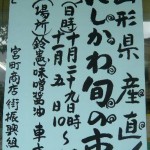 山形県産直
にしかわ旬の市
(日時)十月二十九日~
十一月五日10
(場所)鈴憲味噌醤油 車
宮町商店街振興組